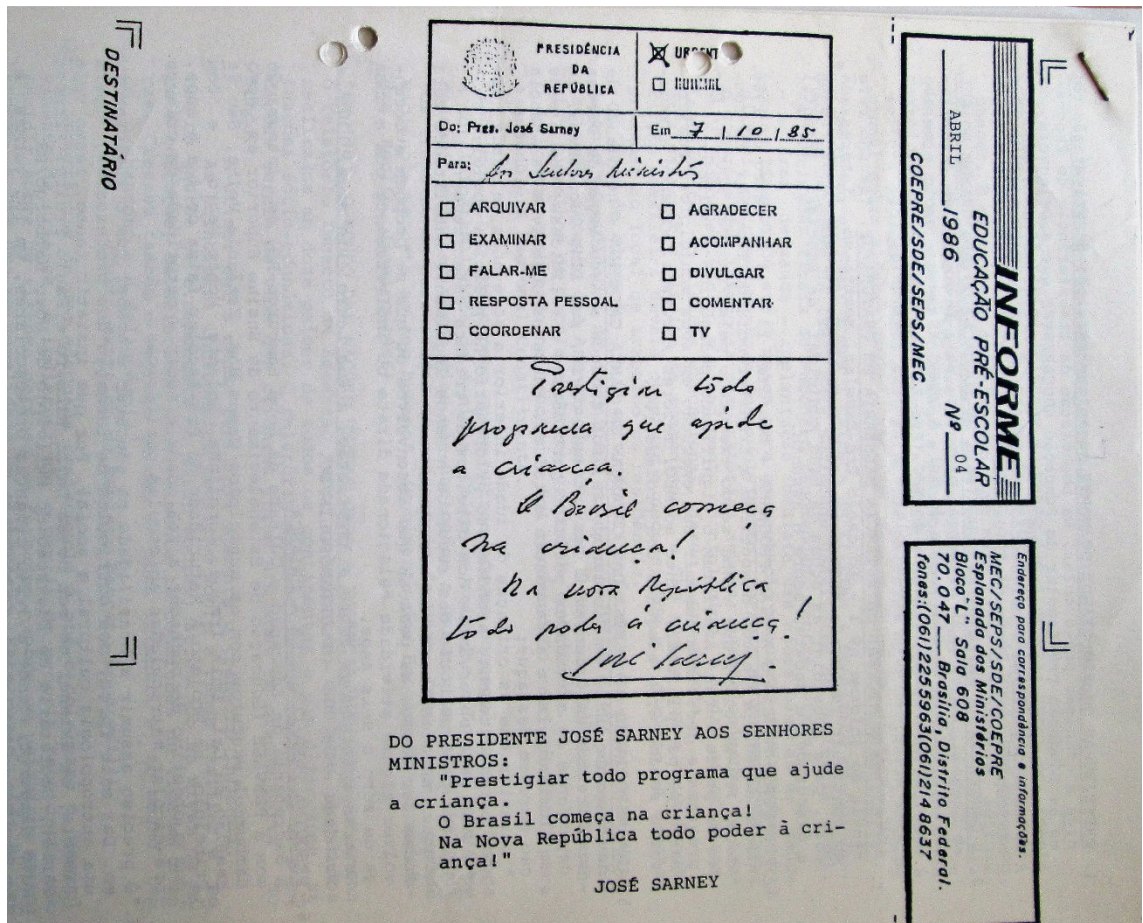 DESTINATÁRIO
PRESIDÊNCIA
DA
REPÚBLICA
URGENT
NORMAL
Do: Pres. José Sarney
Em 7 / 10 / 85
Para: Aos Senhores Ministros
ARQUIVAR
AGRADECER
EXAMINAR
ACOMPANHAR
FALAR-ME
DIVULGAR
RESPOSTA PESSOAL
COMENTAR
COORDENAR
TV
Prestigiar todo
programa que ajude
a criança.
O Brasil começa
na criança!
Na nova República
todo poder à criança!
José Sarney.
DO PRESIDENTE JOSÉ SARNEY AOS SENHORES
MINISTROS:
"Prestigiar todo programa que ajude
a criança.
O Brasil começa na criança!
Na Nova República todo poder à cri-
ança!"
JOSÉ SARNEY
INFORME
EDUCAÇÃO PRÉ-ESCOLAR
ABRIL 1986 Nº 04
COEPRE/SDE/SEPS/MEC
Endereço para correspondência e informações.
MEC/SEPS/SDE/COEPRE
Esplanada dos Ministérios
Bloco "L" Sala 608
70.047 — Brasília, Distrito Federal.
fones:(061)2255963(061)2148637